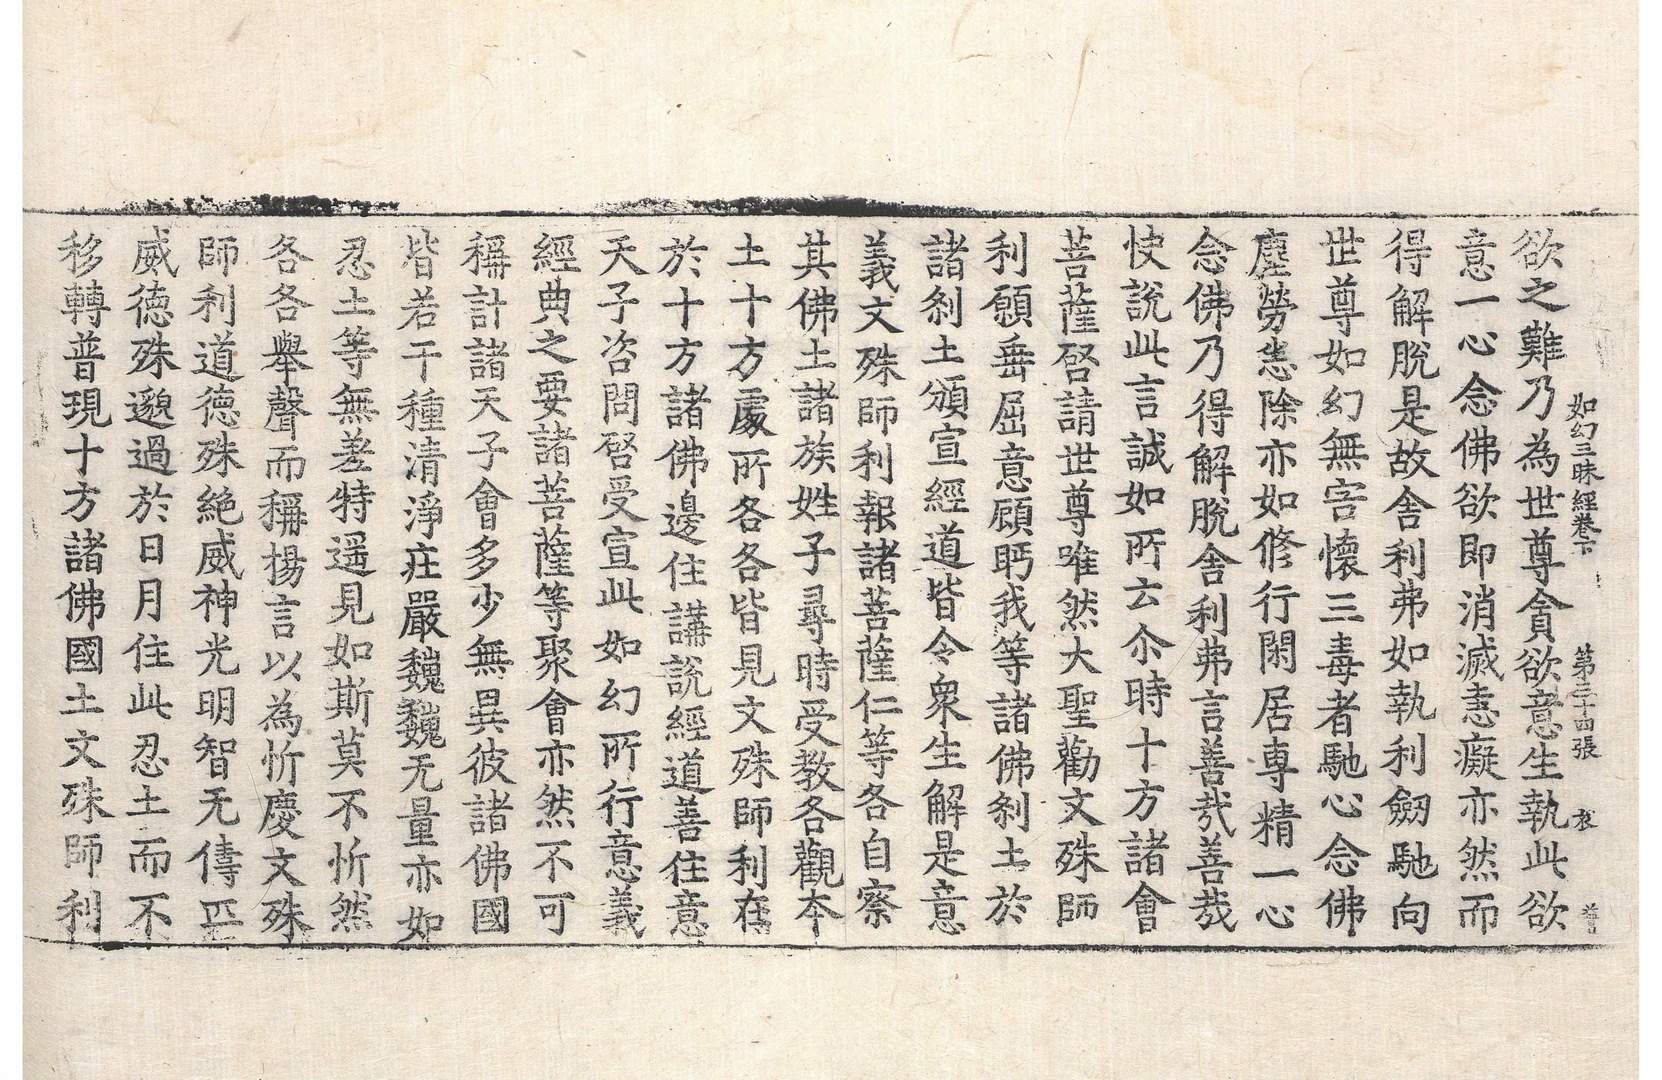 如幻三昧經卷下 第三十四張 衣
欲之難乃為世尊貪欲意生執此欲
意一心念佛欲即消滅恚癡亦然而
得解脫是故舍利弗如執利劒馳向
世尊如幻無害懷三毒者馳心念佛
塵勞悉除亦如修行閑居專精一心
念佛乃得解脫舍利弗言善哉善哉
快說此言誠如所云尒時十方諸會
菩薩啓請世尊唯然大聖勸文殊師
利願垂屈意顧眄我等諸佛剎土於
諸剎土頒宣經道皆令衆生解是意
義文殊師利報諸菩薩仁等各自察
其佛土諸族姓子尋時受教各觀本
土十方處所各各皆見文殊師利在
於十方諸佛邊住講說經道善住意
天子咨問啓受宣此如幻所行意義
經典之要諸菩薩等聚會亦然不可
稱計諸天子會多少無異彼諸佛國
皆若干種清淨莊嚴巍巍无量亦如
忍土等無差特遥見如斯莫不忻然
各各舉聲而稱揚言以為忻慶文殊
師利道德殊絕威神光明智无儔匹
威德殊邈過於日月住此忍土而不
移轉普現十方諸佛國土文殊師利